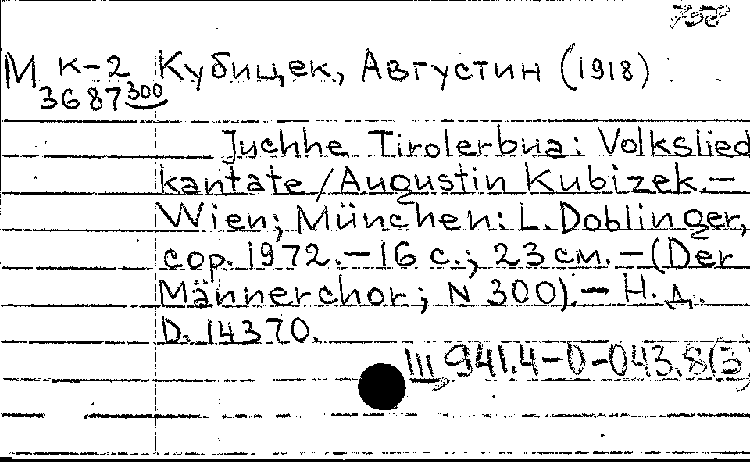 758
М К-2 Кубицек, Августин (1918)
3687 300
Juchhe Tirolerbua: Volkslied
kantate / Augustin Kubizek.—
Wien; München: L. Doblinger,
cop. 1972.— 16 с.; 23 см.— (Der
Männerchor; N 300).— Н. д.
D. 14370.
III, 941.4-0-043.8(3)